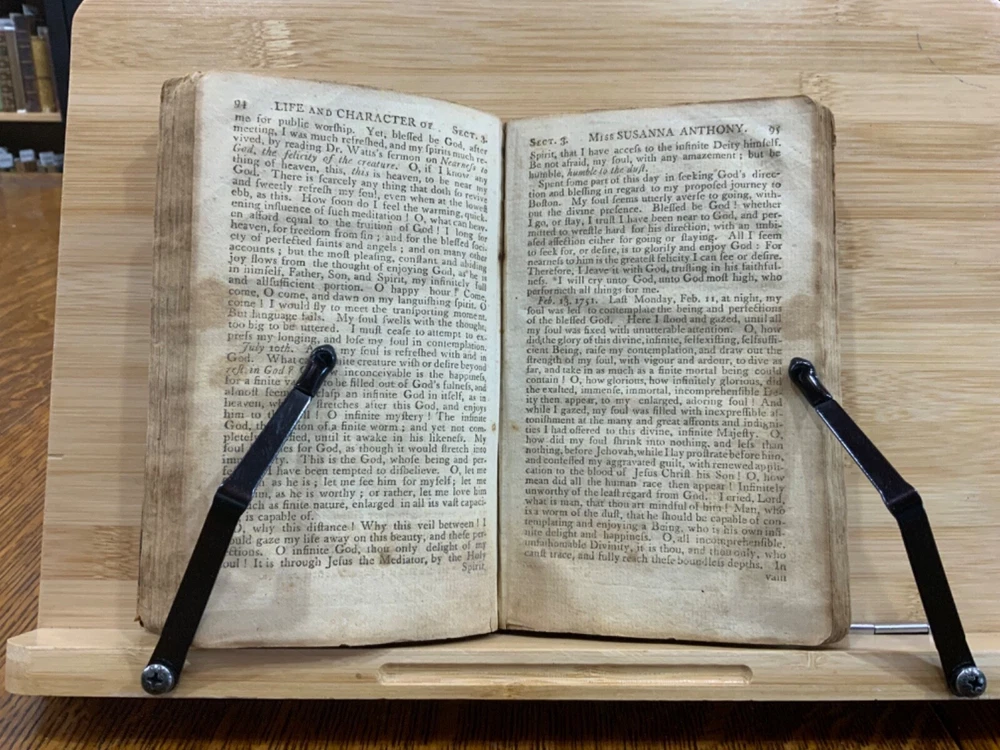 94 LIFE AND CHARACTER OF SECT. 3.
me for public worſhip. Yet, bleſſed be God, after
meeting, I was much refreſhed, and my ſpirits much re-
vived, by reading Dr. Watts's ſermon on Nearneſs to
God, the felicity of the creature. O, if I know any
thing of heaven, this, this is heaven, to be near my
God. There is ſcarcely any thing that doth ſo revive
and ſweetly refreſh my ſoul, even when at the loweſt
ebb, as this. How ſoon do I feel the warming, quick-
ening influence of ſuch meditation! O, what can heav-
en afford equal to the fruition of God! I long for
heaven, for freedom from ſin; and for the bleſſed ſoci-
ety of perfected ſaints and angels; and on many other
accounts; but the moſt pleaſing, conſtant and abiding
joy flows from the thought of enjoying God, as he is
in himſelf, Father, Son, and Spirit, my infinitely full
and allſufficient portion. O happy hour! Come,
come, O come, and dawn on my languiſhing ſpirit. O
come! I would fly to meet the tranſporting moment.
But language fails. My ſoul ſwells with the thought,
too big to be uttered. I muſt ceaſe to attempt to ex-
preſs my longing, and loſe my ſoul in contemplation.
July 10th. my ſoul is refreſhed with and in
God. What finite creature wiſh or deſire beyond
reſt in God? inconceivable is the happineſs,
for a finite to be filled out of God's fulneſs, and
almoſt claſp an infinite God in itſelf, as in
heaven, ſtretches after this God, and enjoys
him to the O infinite myſtery! The infinite
God, the of a finite worm; and yet not com-
pletely until it awake in his likeneſs. My
ſoul for God, as though it would ſtretch into
This is the God, whoſe being and per-
I have been tempted to diſbelieve. O, let me
as he is; let me ſee him for myſelf; let me
him, as he is worthy; or rather, let me love him
ſuch as finite nature, enlarged in all its vaſt capaci-
is capable of.
O, why this diſtance! Why this veil between! I
could gaze my life away on this beauty, and theſe per-
fections. O infinite God, thou only delight of my
ſoul! It is through Jeſus the Mediator, by the Holy
Spirit,
SECT. 3. MISS SUSANNA ANTHONY. 95
Spirit, that I have acceſs to the infinite Deity himſelf.
Be not afraid, my ſoul, with any amazement; but be
humble, humble to the duſt.
Spent ſome part of this day in ſeeking God's direc-
tion and bleſſing in regard to my propoſed journey to
Boſton. My ſoul ſeems utterly averſe to going, with-
out the divine preſence. Bleſſed be God! whether
I go, or ſtay, I truſt I have been near to God, and per-
mitted to wreſtle hard for his direction, with an unbi-
aſed affection either for going or ſtaying. All I ſeem
to ſeek for, or deſire, is to glorify and enjoy God: For
nearneſs to him is the greateſt felicity I can ſee or deſire.
Therefore, I leave it with God, truſting in his faithful-
neſs. "I will cry unto God, unto God moſt high, who
performeth all things for me.
Feb. 13, 1751. Laſt Monday, Feb. 11, at night, my
ſoul was led to contemplate the being and perfections
of the bleſſed God. Here I ſtood and gazed, until all
my ſoul was fixed with unutterable attention. O, how
did the glory of this divine, infinite, ſelfexiſting, ſelfſuffi-
cient Being, raiſe my contemplation, and draw out the
ſtrength of my ſoul, with vigour and ardour, to dive as
far, and take in as much as a finite mortal being could
contain! O, how glorious, how infinitely glorious, did
the exalted, immenſe, immortal, incomprehenſible De-
ity then appear, to my enlarged, adoring ſoul! And
while I gazed, my ſoul was filled with inexpreſſible aſ-
toniſhment at the many and great affronts and indigni-
ties I had offered to this divine, infinite Majeſty. O,
how did my ſoul ſhrink into nothing, and leſs than
nothing, before Jehovah, while I lay proſtrate before him,
and confeſſed my aggravated guilt, with renewed appli-
cation to the blood of Jeſus Chriſt his Son! O, how
mean did all the human race then appear! Infinitely
unworthy of the leaſt regard from God. I cried, Lord,
what is man, that thou art mindful of him! Man, who
is a worm of the duſt, that he ſhould be capable of con-
templating and enjoying a Being, who is his own infi-
nite delight and happineſs. O, all incomprehenſible,
unfathomable Divinity, it is thou, and thou only, who
canſt trace, and fully reach theſe boundleſs depths. In
vain